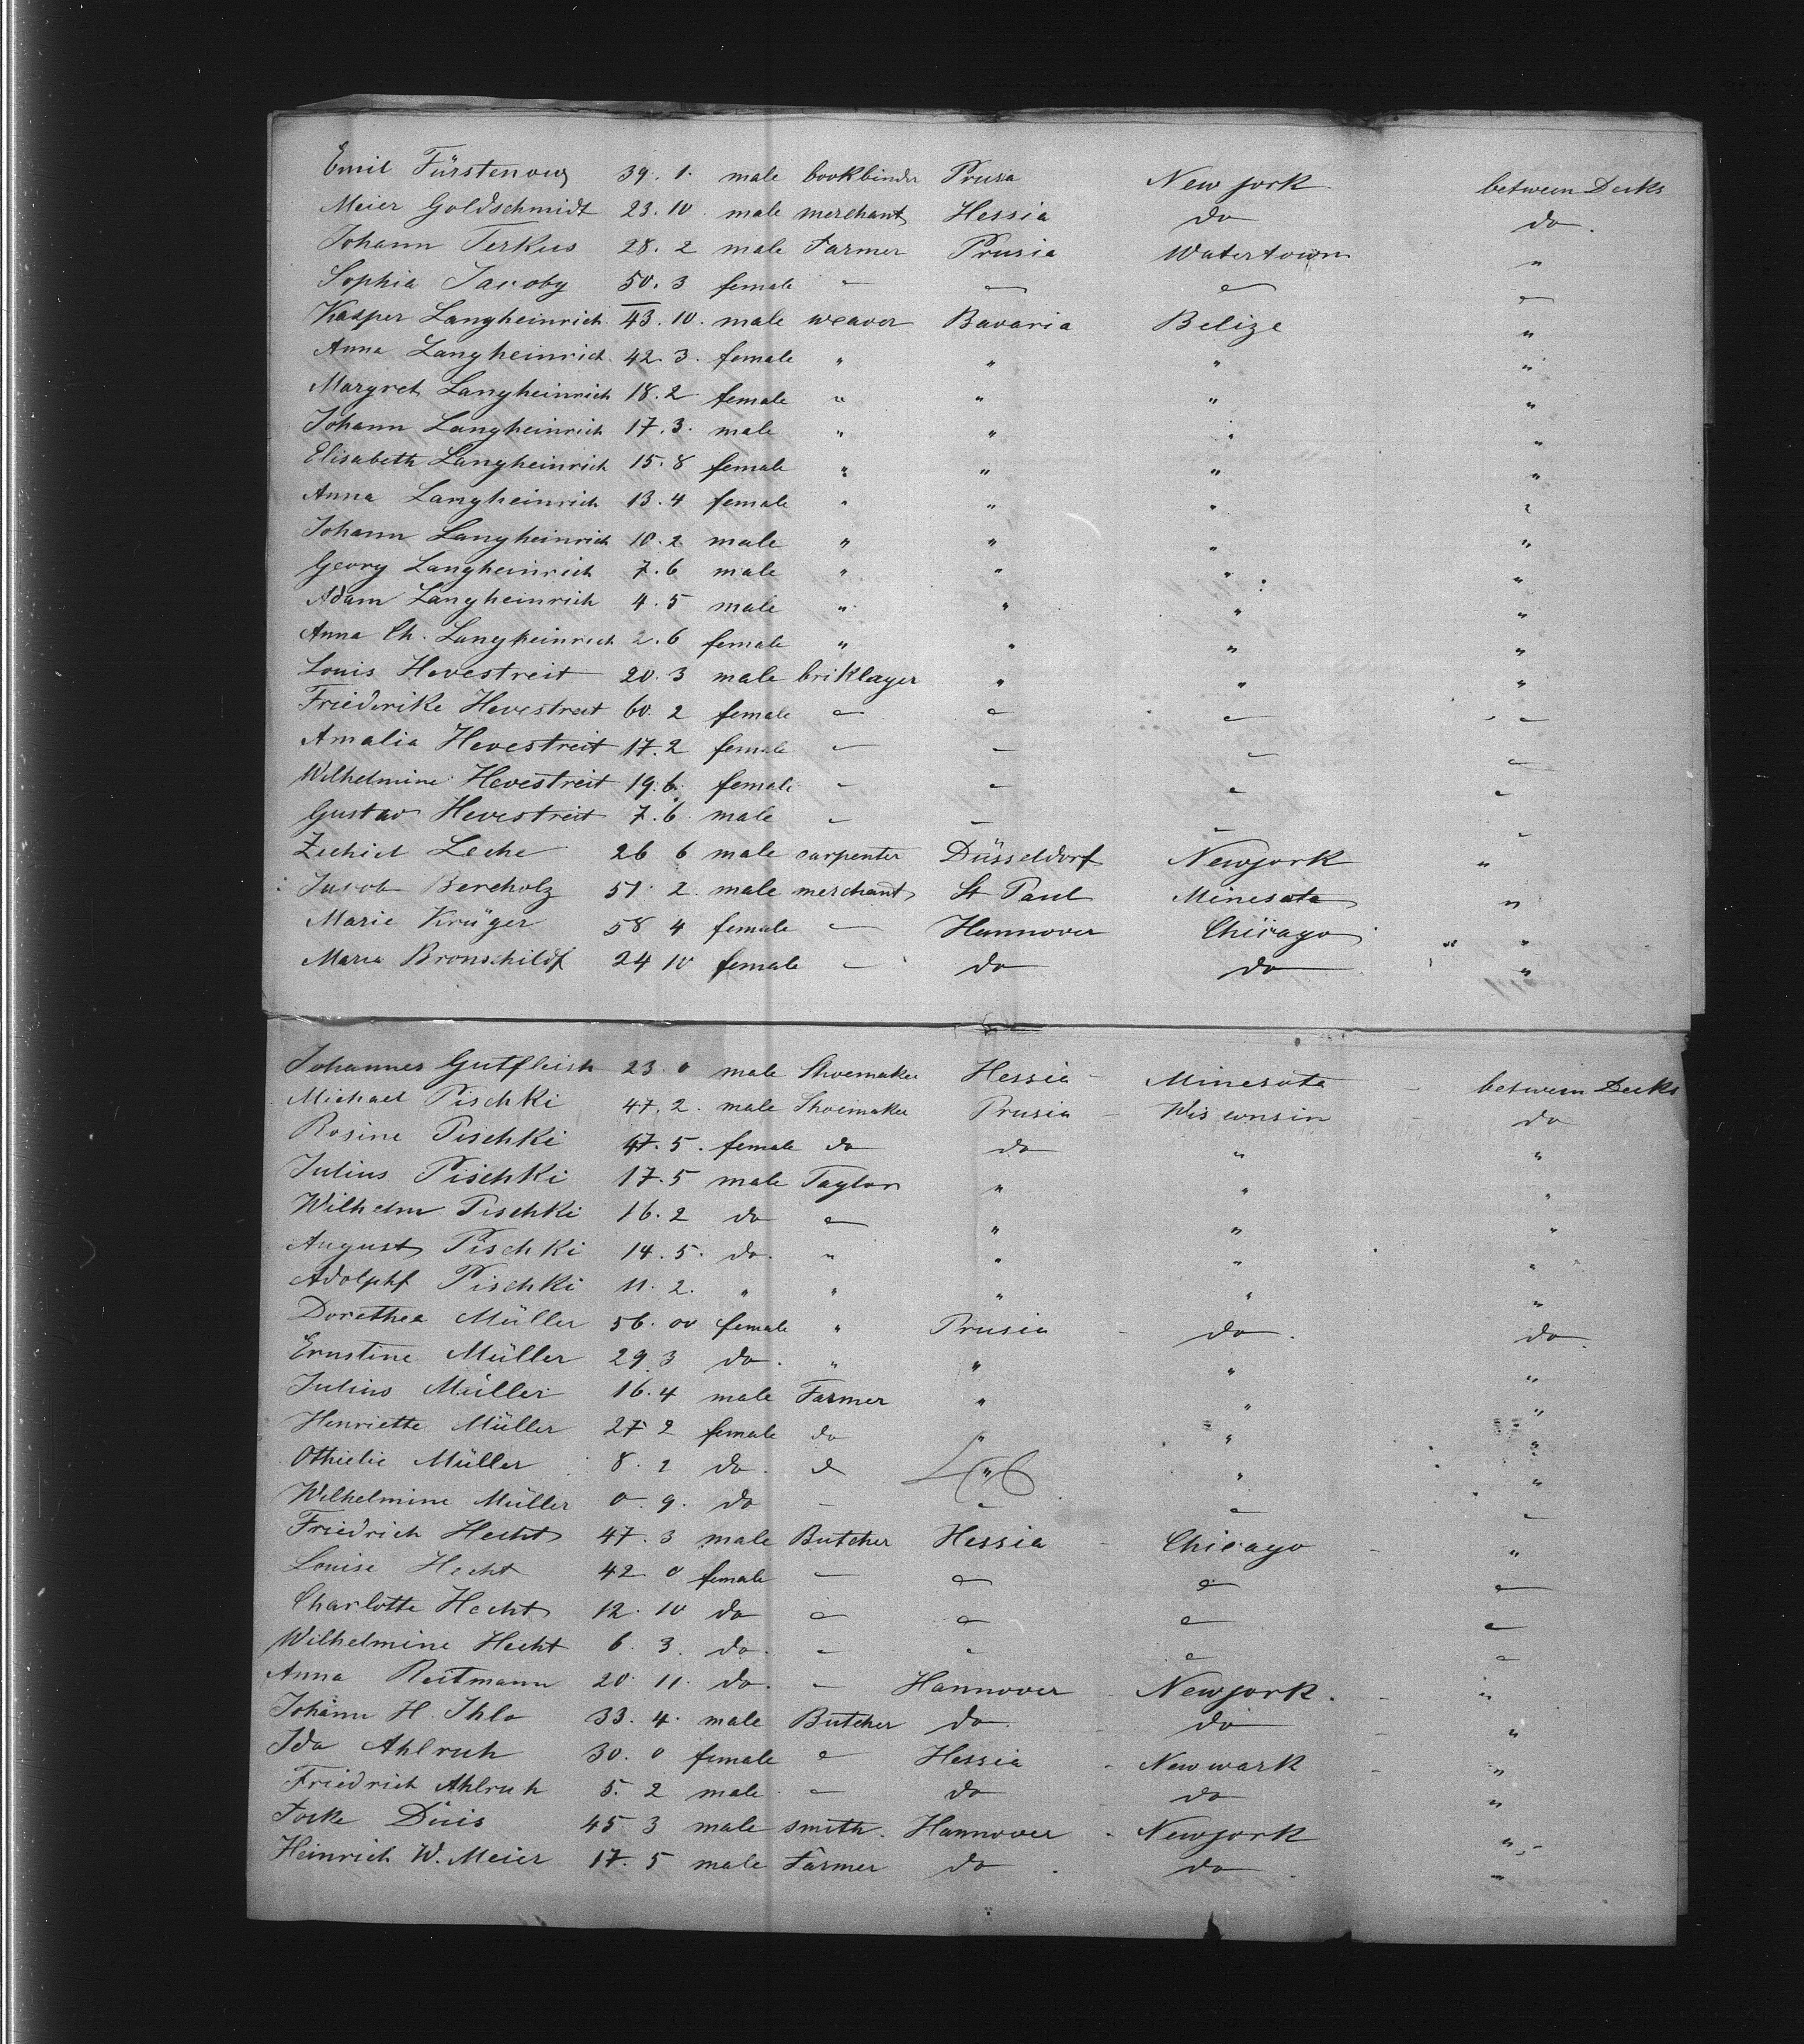 Emil Fürstenow 39. 1. male bookbinder Prusia New york between Decks
Meier Goldschmidt 23. 10. male merchant Hessia do do.
Johann Terkus 28. 2 male Farmer Prusia Watertown "
Sophia Jacoby 50. 3 female " " " "
Kasper Langheinrich 43. 10. male weaver Bavaria Belize "
Anna Langheinrich 42. 3. female " " " "
Margret Langheinrich 18. 2 female " " " "
Johann Langheinrich 17. 3. male " " " "
Elisabeth Langheinrich 15. 8 female " " " "
Anna Langheinrich 13. 4 female " " " "
Johann Langheinrich 10. 2 male " " " "
Georg Langheinrich 7. 6 male " " " "
Adam Langheinrich 4. 5 male " " " "
Anna Ch. Langheinrich 2. 6 female " " " "
Louis Hevestreit 20. 3 male briklayer " " "
Friederike Hevestreit 60. 2 female " " " "
Amalia Hevestreit 17. 2 female " " " "
Wilhelmine Hevestreit 19. 6. female " " " "
Gustav Hevestreit 7. 6 male " " " "
Leche 26 6 male carpenter Düsseldorf Newyork "
Jacob Bercholz 51. 2. male merchant St Paul Minesota "
Marie Krüger 58 4 female " Hannover Chicago "
Maria Bronschildf 24 10 female " do do "
Johannes Gutfleish 23 0 male Shoemaker Hessia Minesota between Decks
Michael Pischki 47. 2. male Shoemaker Prusia Wisconsin do
Rosine Pischki 47. 5. female do do " "
Julius Pischki 17. 5 male Taylor " " "
Wilhelm Pischki 16. 2 do " " " "
August Pischki 14. 5. do. " " " "
Adolphf Pischki 11. 2. " " " " "
Dorethea Müller 56. 00 female " Prusia do. do.
Ernstine Müller 29. 3 do. " " " "
Julius Müller 16. 4 male Farmer " " "
Henriette Müller 27 2 female do " " "
Othielie Müller 8. 2 do. " " " "
Wilhelmine Müller 0. 9. do " " " "
Friedrich Hecht 47. 3 male Butcher Hessia Chicago "
Louise Hecht 42 0 female " " " "
Charlotte Hecht 12. 10 do " " " "
Wilhelmine Hecht 6. 3. do. " " " "
Anna Reitmann 20. 11. do. " Hannover Newyork. "
Johann H. Ihlo 33. 4. male Butcher do. do "
Ida Ahlruh 30. 0 female " Hessia Newwark "
Friedrich Ahlruh 5. 2 male " do do "
Focke Duis 45 3 male smith. Hannover Newyork "
Heinrich W. Meier 17. 5 male Farmer do do "